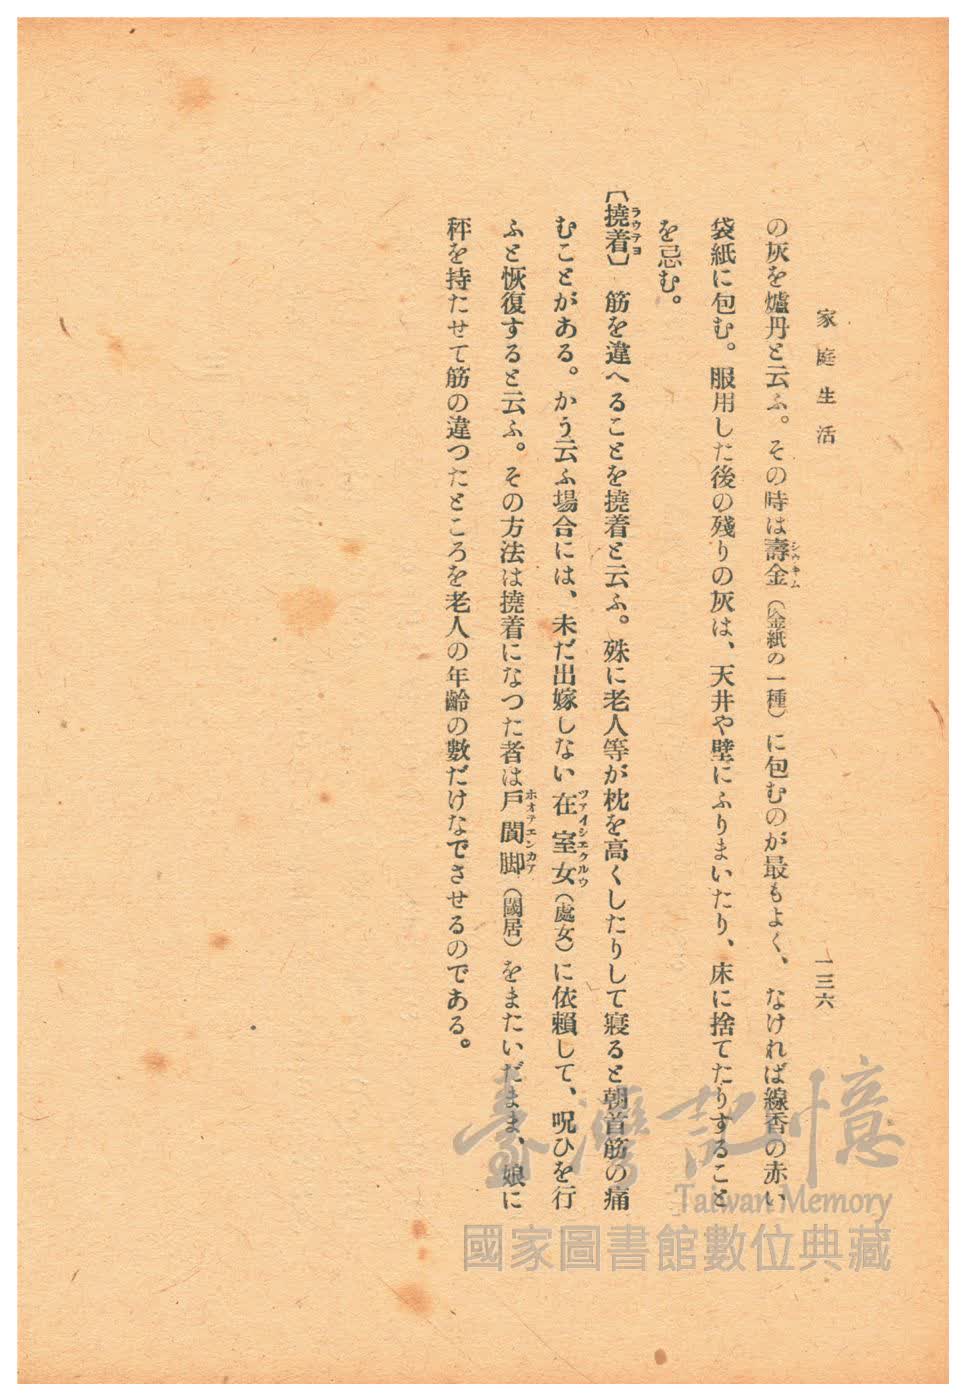 家庭生活
一三六
の灰を爐丹と云ふ。その時は壽金（金紙の一種）に包むのが最もよく、なければ線香の赤い
シウキム
袋紙に包む。服用した後の殘りの灰は、天井や壁にふりまいたり、床に捨てたりすること
を忌む。
〔撓着〕 筋を違へることを撓着と云ふ。殊に老人等が枕を高くしたりして寢ると朝首筋の痛
ラウテヨ
むことがある。かう云ふ場合には、未だ出嫁しない在室女（處女）に依賴して、呪ひを行
ツァイシエクルウ
ふと恢復すると云ふ。その方法は撓着になつた者は戶閾脚（閾居）をまたいだまま、娘に
ホオテエンカア
秤を持たせて筋の違つたところを老人の年齡の數だけなでさせるのである。
臺灣記憶
Taiwan Memory
國家圖書館數位典藏